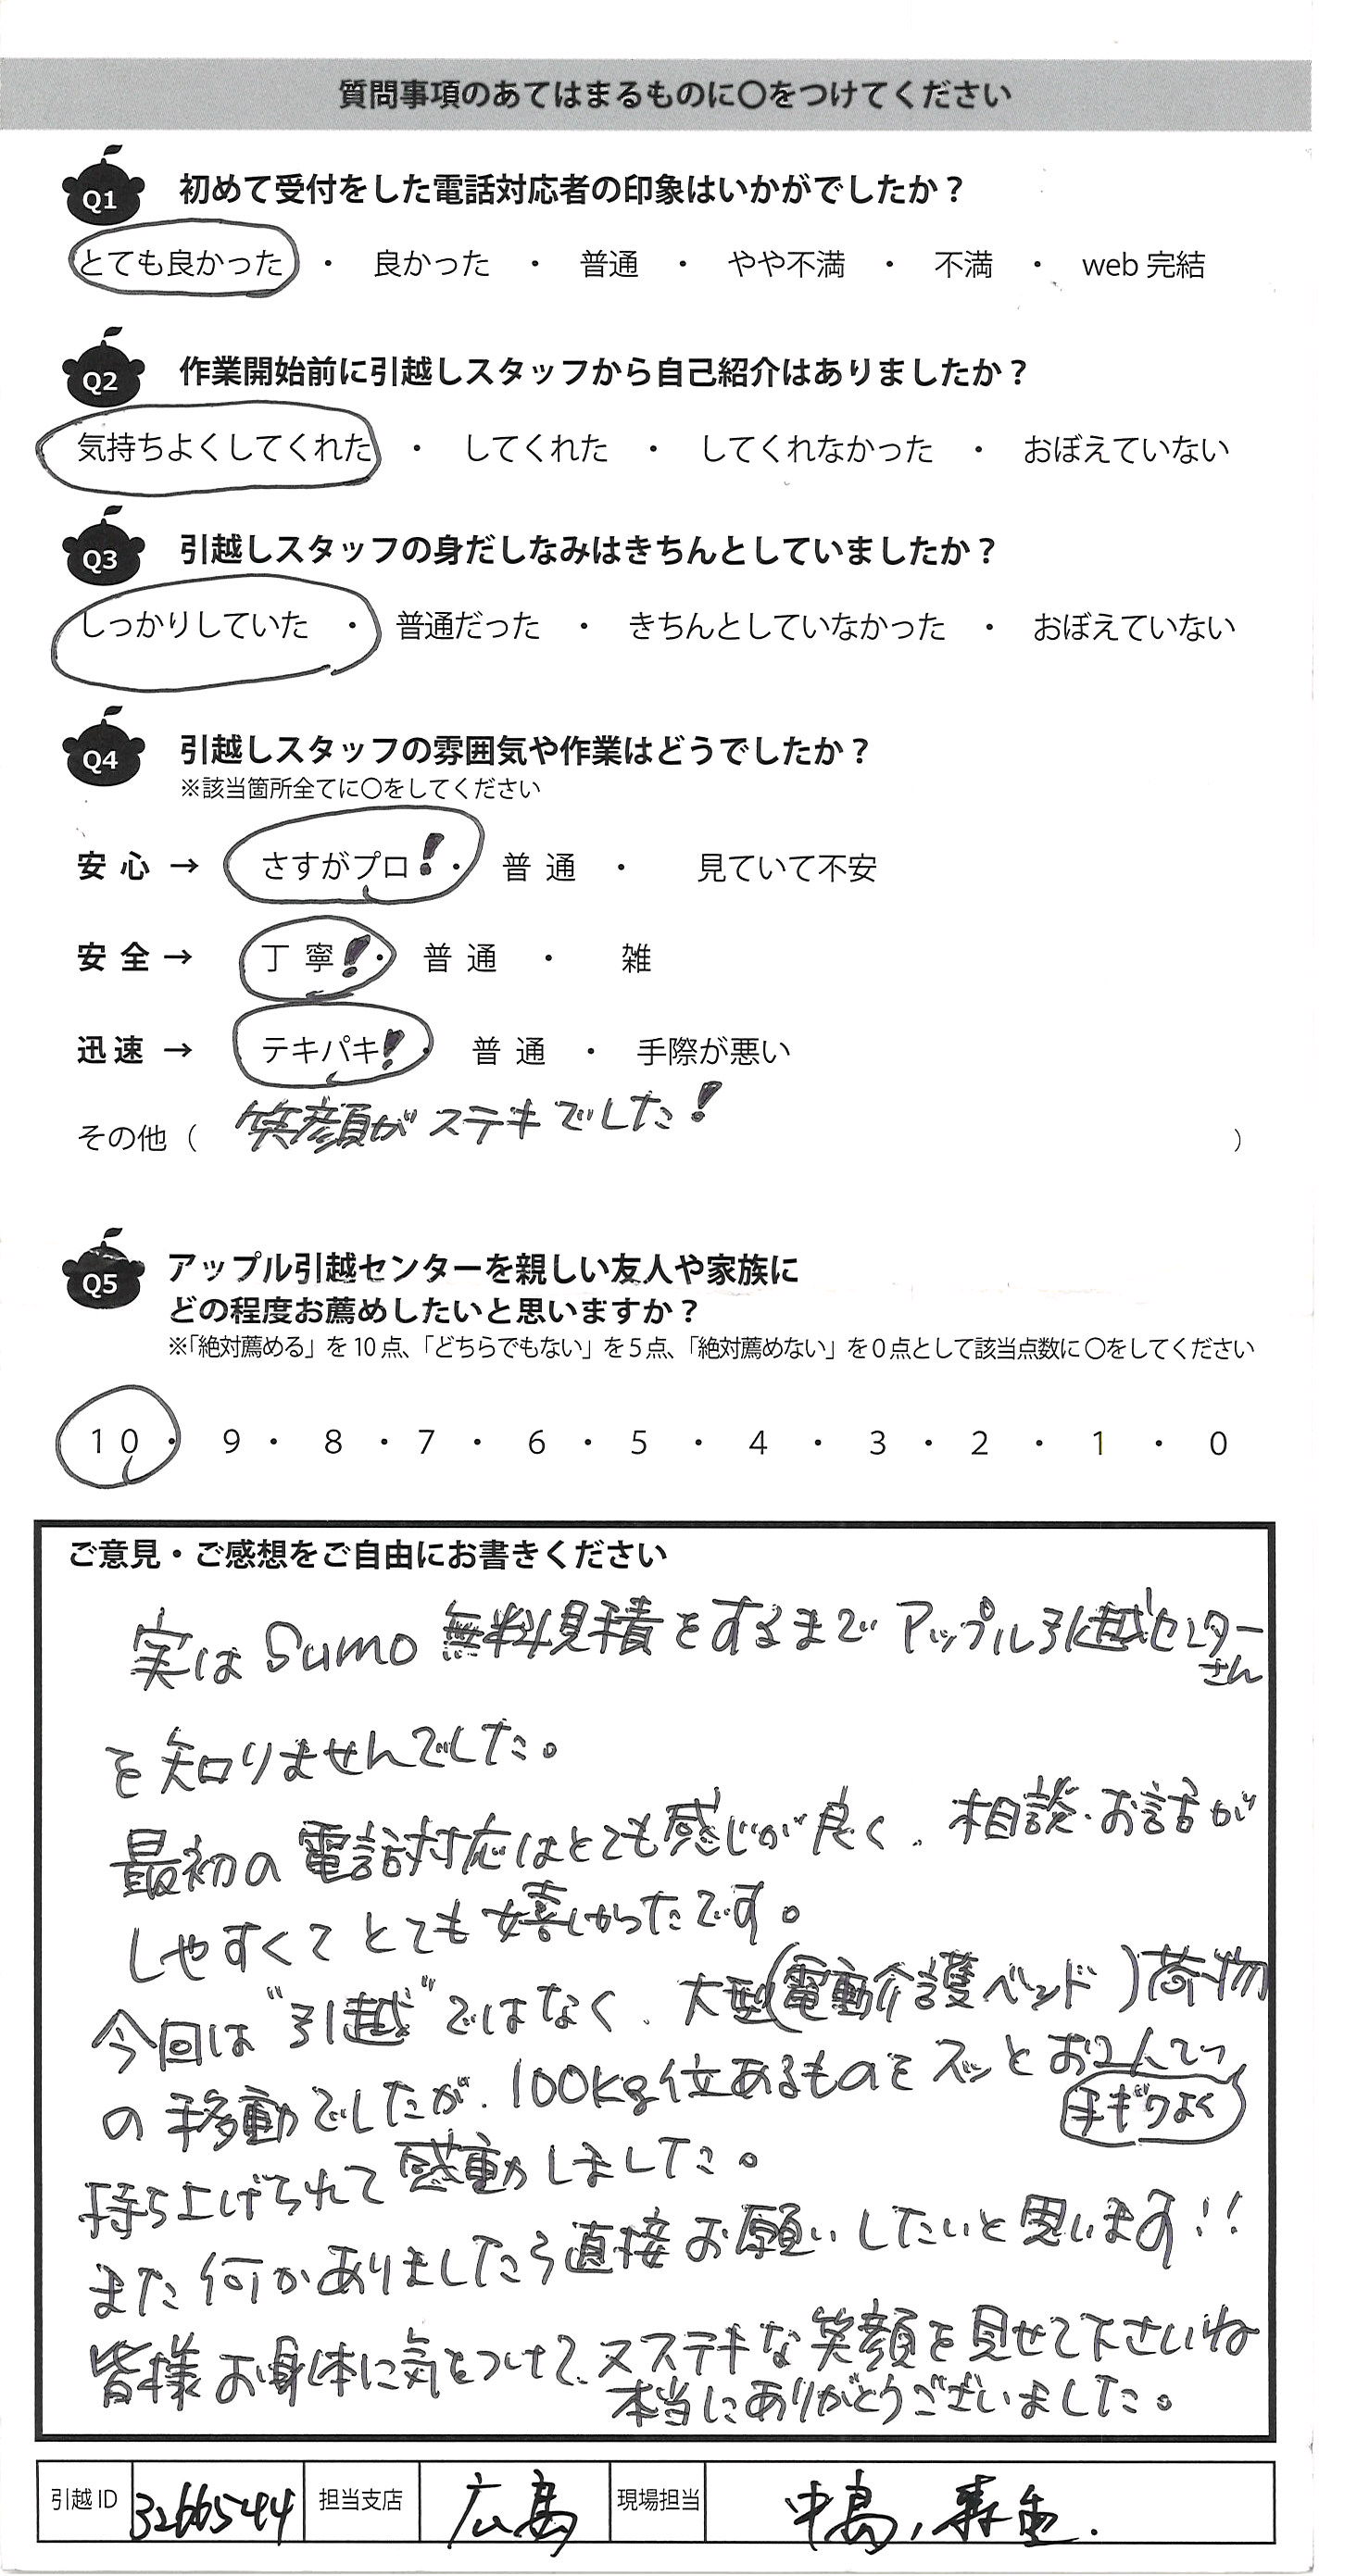 質問事項のあてはまるものに〇をつけてください
Q1 初めて受付をした電話対応者の印象はいかがでしたか？
とても良かった ・ 良かった ・ 普通 ・ やや不満 ・ 不満 ・ web 完結
Q2 作業開始前に引越しスタッフから自己紹介はありましたか？
気持ちよくしてくれた ・ してくれた ・ してくれなかった ・ おぼえていない
Q3 引越しスタッフの身だしなみはきちんとしていましたか？
しっかりしていた ・ 普通だった ・ きちんとしていなかった ・ おぼえていない
Q4 引越しスタッフの雰囲気や作業はどうでしたか？
※該当箇所全てに〇をしてください
安 心 → さすがプロ！・ 普 通 ・ 見ていて不安
安 全 → 丁 寧！・ 普 通 ・ 雑
迅 速 → テキパキ！・ 普 通 ・ 手際が悪い
その他（ 笑顔がステキでした！ ）
Q5 アップル引越センターを親しい友人や家族に
どの程度お薦めしたいと思いますか？
※「絶対薦める」を 10 点、「どちらでもない」を 5 点、「絶対薦めない」を 0 点として該当点数に 〇をしてください
10 ・ 9 ・ 8 ・ 7 ・ 6 ・ 5 ・ 4 ・ 3 ・ 2 ・ 1 ・ 0
ご意見・ご感想をご自由にお書きください
実は Sumo 無料見積をするまで アップル引越センターさん
を知りませんでした。
最初の電話対応はとても感じが良く、相談・お話が
しやすくて とても嬉しかったです。
今回は"引越"ではなく、大型(電動介護ベッド)荷物
の移動でしたが、100kg位あるものをズッとお2人でっ
手ギワよく
持ち上げられて感動しました。
また何かありましたら直接お願いしたいと思います!!
皆様お身体に気をつけて、又ステキな笑顔を見せて下さいね
本当にありがとうございました。
引越 ID 3266544 担当支店 広島 現場担当 中島,森重.